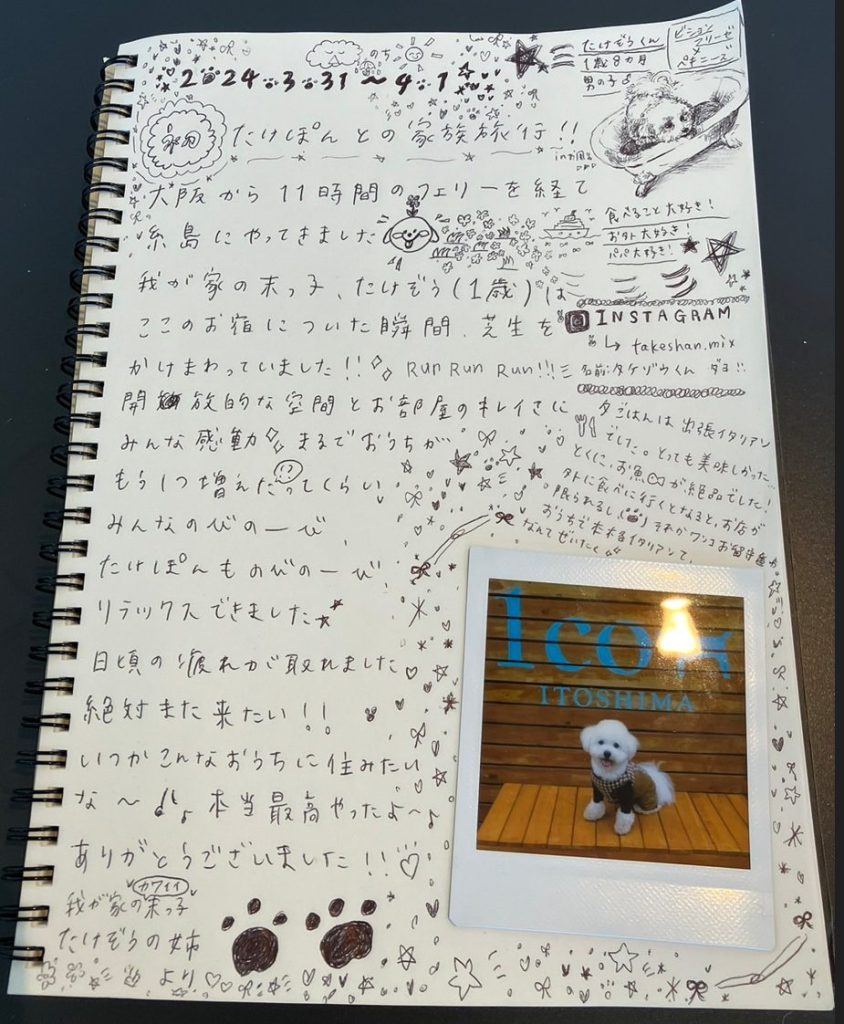 のち
2024.3.31〜4.1
たけぞうくん
1歳8カ月
男の子♂
ビション
フリーゼ
×
ペキニーズ
たけぽんとの家族旅行!!
inお風呂
大阪から11時間のフェリーを経て
糸島にやってきました
食べること大好き!
お外大好き!
パパ大好き!
我が家の末っ子、たけぞう(1歳)は
ここのお宿についた瞬間、芝生を
かけまわっていました!! Run Run Run!!!
INSTAGRAM
↳ takeshan.mix
名前:タケゾウくん ダヨ!!
開放的な空間とお部屋のキレイさに
みんな感動 まるでおうちが
もう1つ増えたってくらい
みんなのびのーび
たけぽんものびのーび
リラックスできました
日頃の疲れが取れました
絶対また来たい!!
いつかこんなおうちに住みたい
な〜♪ 本当最高やったよ〜♪
ありがとうございました!!♡
夕ごはんは出張イタリアン
でした。とっても美味しかった
とくに、お魚が絶品でした!
外に食べに行くとなると、お店が
限られるし、それかワンコお留守番か
おうちで本格イタリアンて、
なんてぜいたく
1co
ITOSHIMA
カワイイ
我が家の末っ子
たけぞうの姉
より